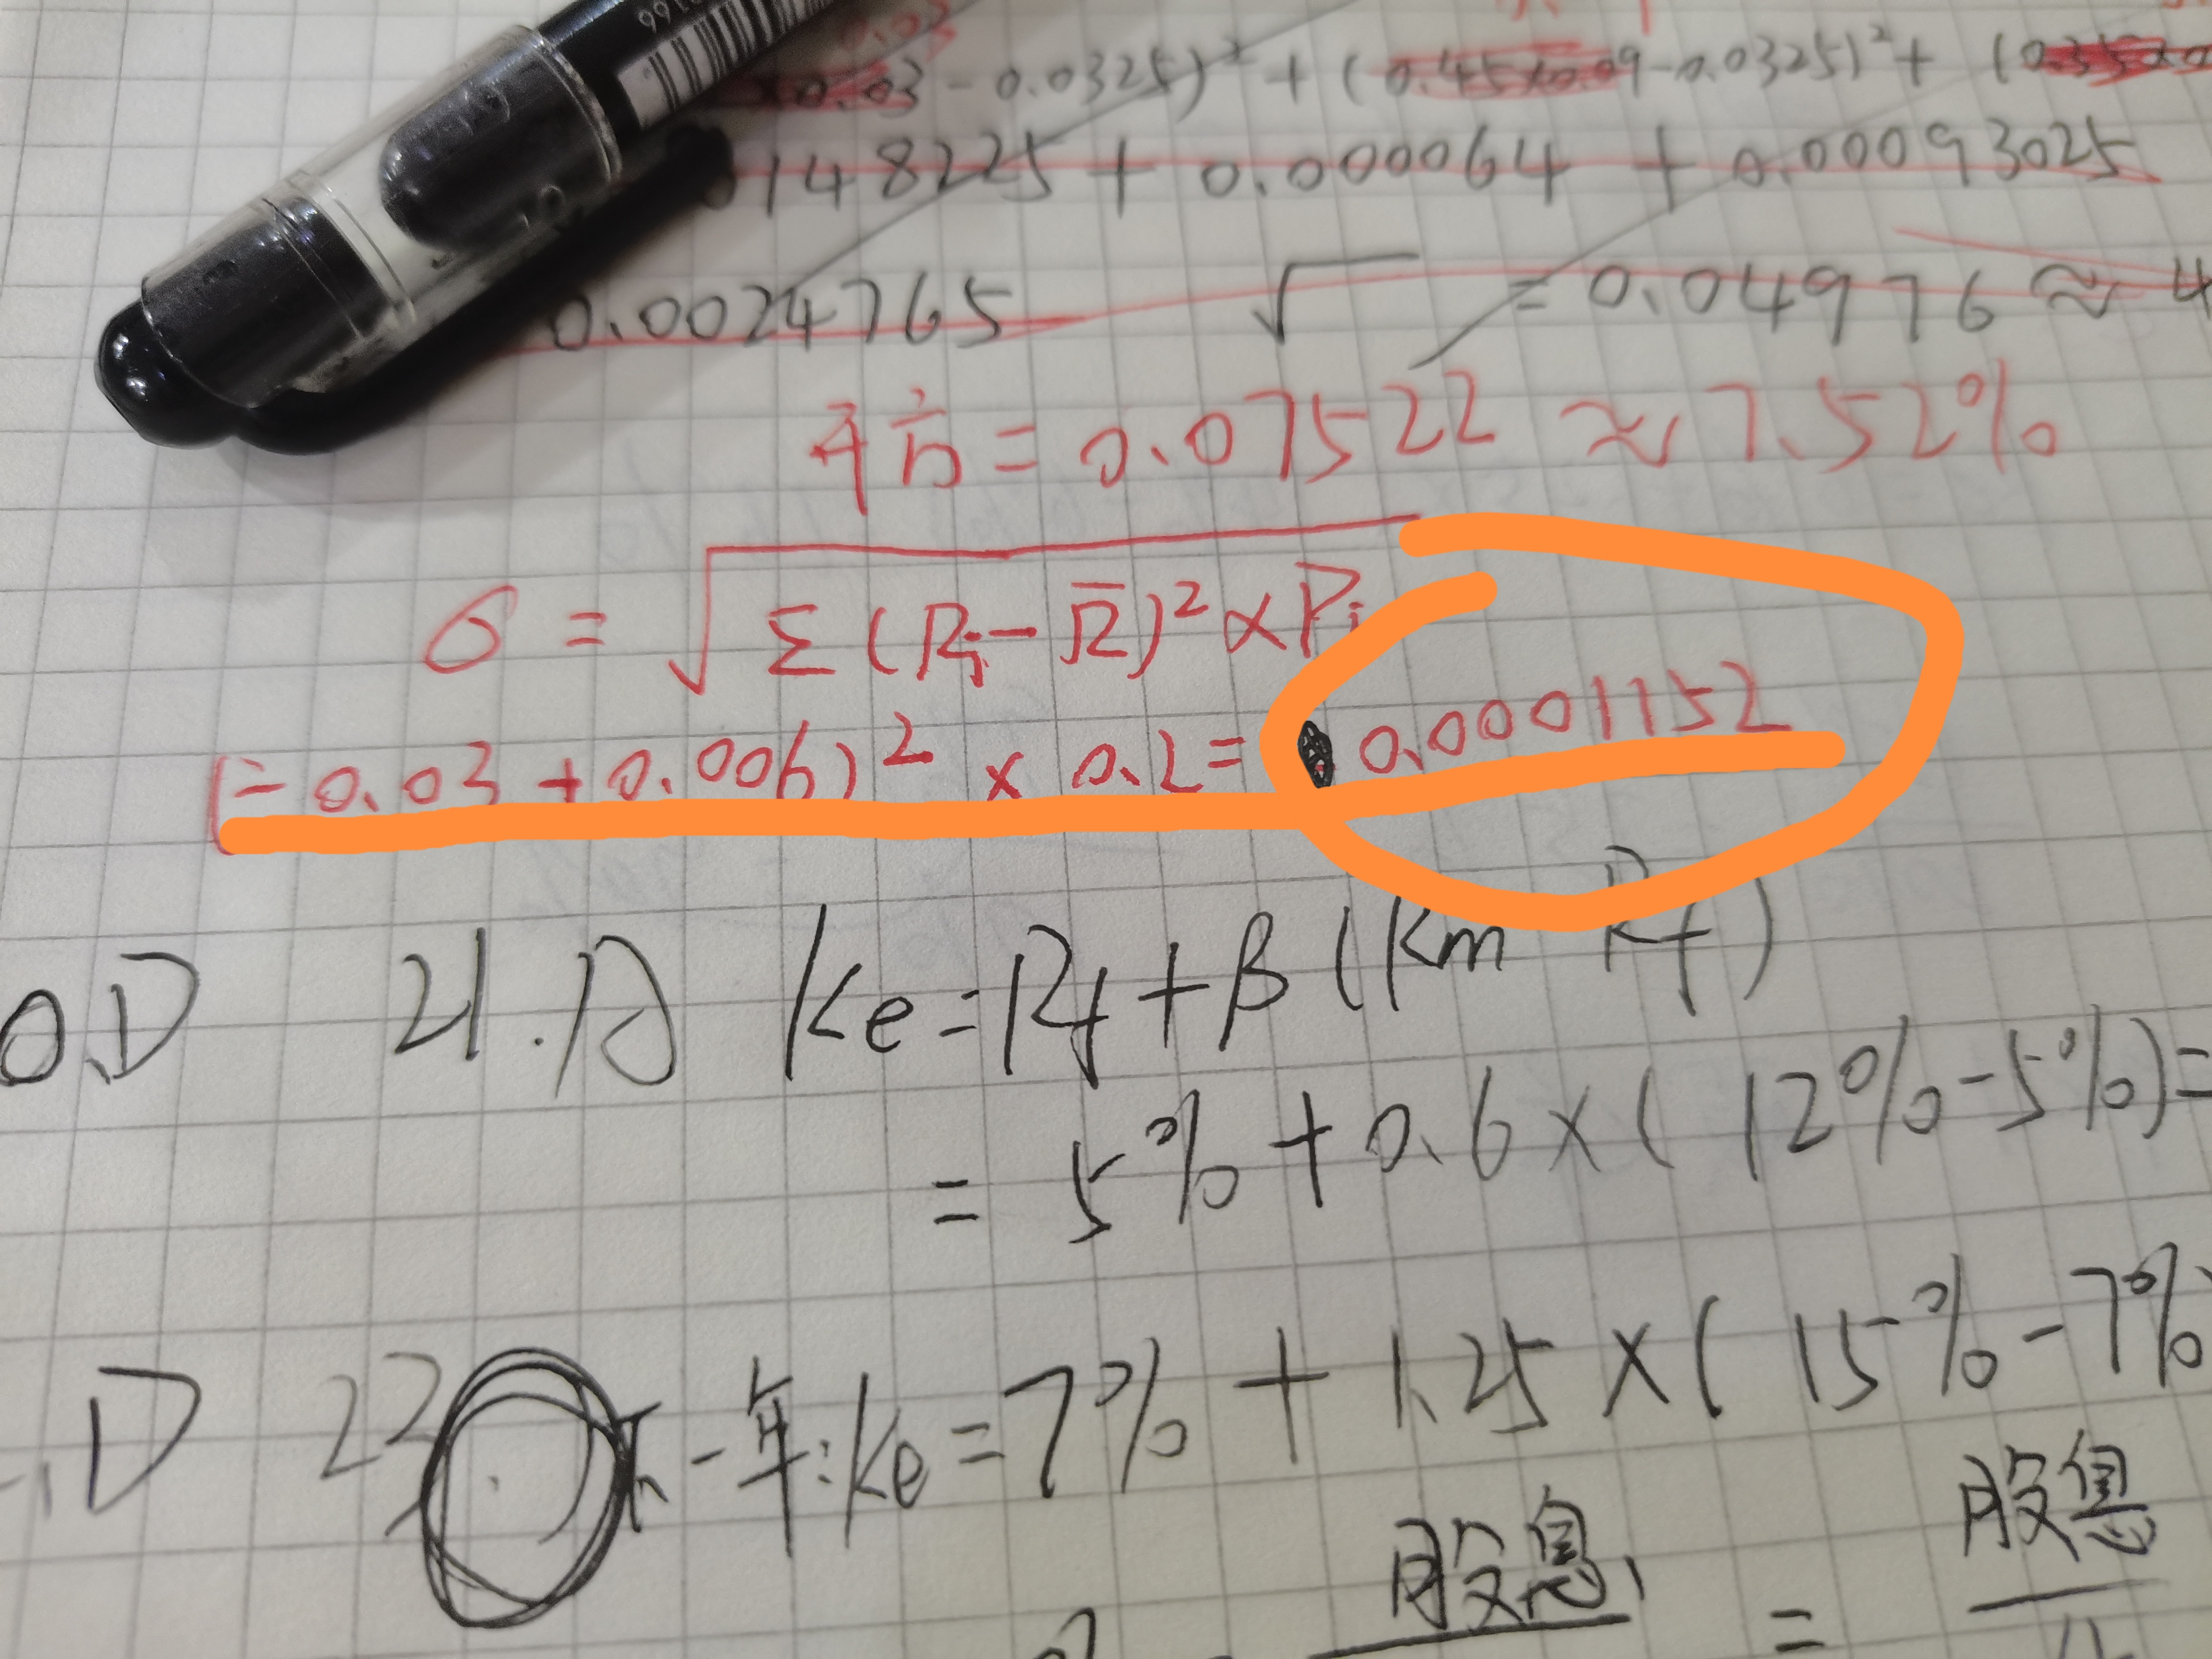 0.03
×0.03 - 0.0325)² + (0.45×0.09 - 0.0325)² + (0.35×0
0148225 + 0.000064 + 0.00093025
0.0024765 √ = 0.04976 ≈ 4
开方 = 0.07522 ≈ 7.52%
σ = √Σ(Ri - R̄)² × Pi
(-0.03 + 0.006)² × 0.2 = 0.0001152
0.D 21.A Ke = Rf + β(Km Rf)
= 5% + 0.6 × (12% - 5%) =
.D 22 下一年: Ke = 7% + 1.25 × (15% - 7%
股息 股息
=